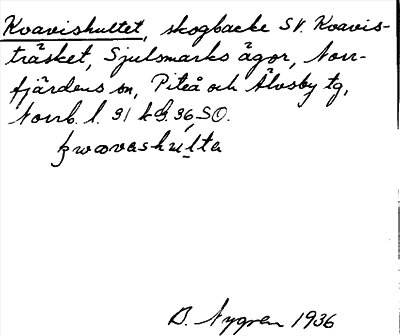 Kvavishultet, skogbacke SV. Kvavis-
träsket, Sjulsmarks ägor, Norr-
fjärdens sn, Piteå och Älvsby tg,
Norrb. l. 91 kd. 96, SO.
B. Nygren 1936